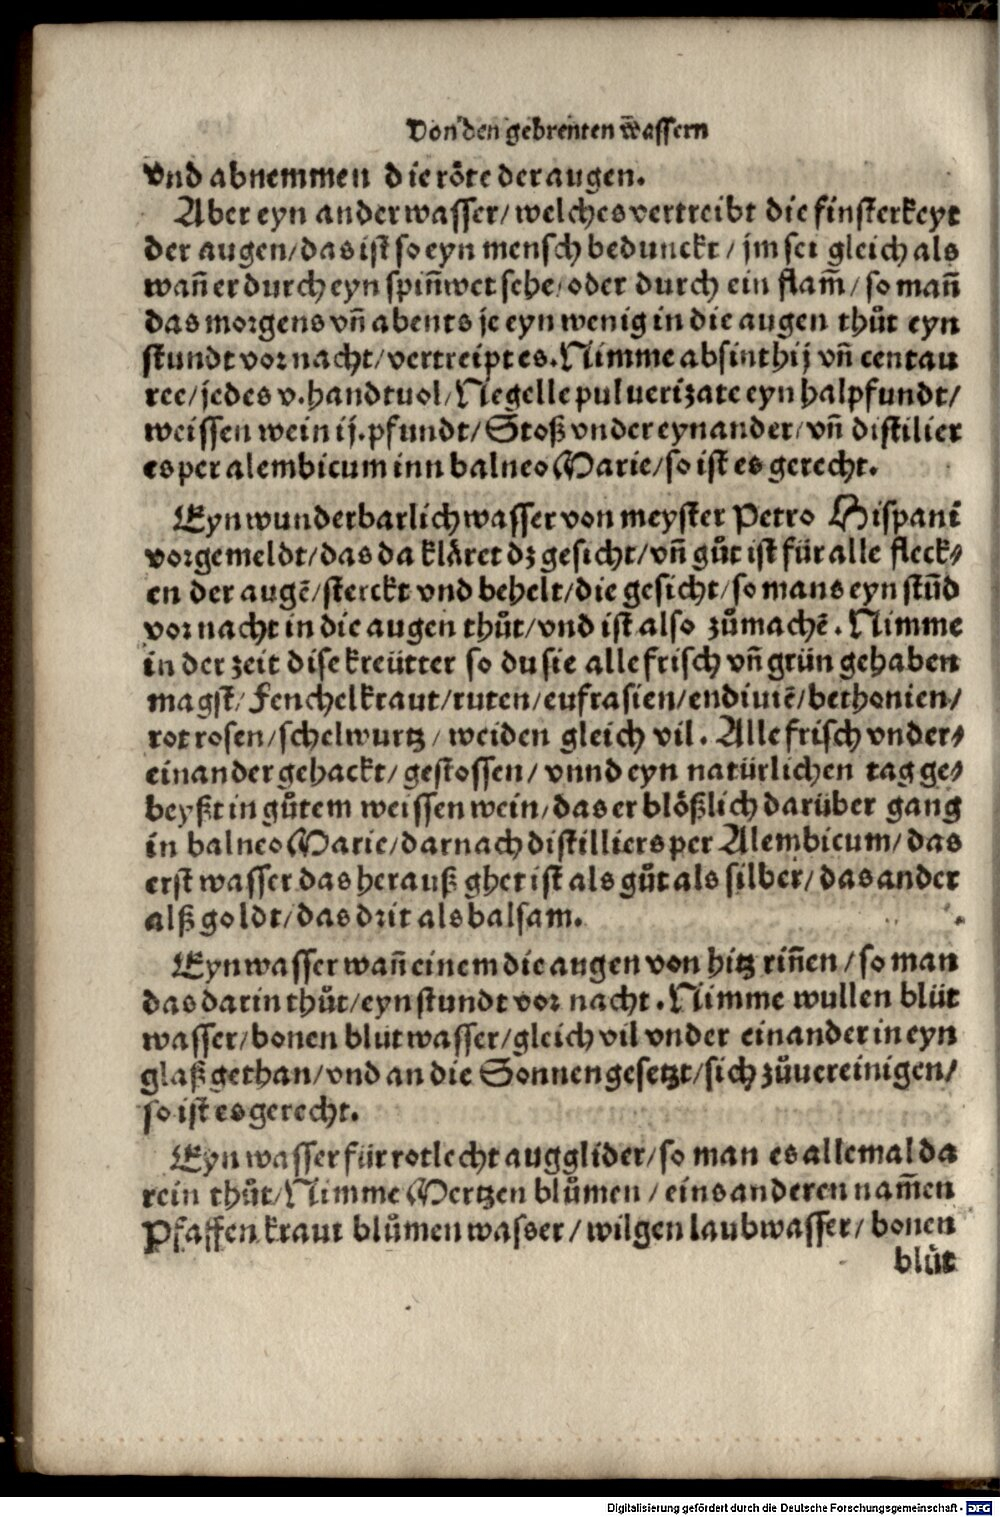 Von den gebrenten wassern
vnd abnemmen die röte der augen.
Aber eyn ander wasser/ welches vertreibt die finsterkeyt
der augen/ das ist so eyn mensch bedunckt/ jm sei gleich als
wañ er durch eyn spiñwet sehe/ oder durch ein flam̃/ so mañ
das morgens vñ abents je eyn wenig in die augen thůt eyn
stundt vor nacht/ vertreipt es. Nimme absinthij vñ centau
ree/ jedes v. handtuol/ Negelle puluerizate eyn halpfundt/
weissen wein ij. pfundt/ Stoß vnder eynander/ vñ distilier
es per alembicum inn balneo Marie/ so ist es gerecht.
Eyn wunderbarlich wasser von meyster Petro Hispani
vorgemeldt/ das da kläret dz gesicht/ vñ gůt ist für alle fleck⸗
en der augē/ sterckt vnd behelt/ die gesicht/ so mans eyn stũd
vor nacht in die augen thůt/ vnd ist also zůmachē. Nimme
in der zeit dise kreütter so du sie alle frisch vñ grün gehaben
magst/ Fenchelkraut/ ruten/ eufrasien/ endiuiē/ bethonien/
rot rosen/ schelwurtz/ weiden gleich vil. Alle frisch vnder⸗
einander gehackt/ gestossen/ vnnd eyn natürlichen tag ge⸗
beyßt in gůtem weissen wein/ das er blößlich darüber gang
in balneo Marie/ darnach distilliers per Alembicum/ das
erst wasser das herauß ghet ist als gůt als silber/ das ander
alß goldt/ das drit als balsam.
Eyn wasser wañ einem die augen von hitz riñen/ so man
das darin thůt/ eyn stundt vor nacht. Nimme wullen blůt
wasser/ bonen blut wasser/ gleich vil vnder einander in eyn
glaß gethan/ vnd an die Sonnen gesetzt/ sich zůuereinigen/
so ist es gerecht.
Eyn wasser für rotlecht augglider/ so man es allemal da
rein thůt/ Nimme Mertzen blůmen/ eins anderen nam̃en
Pfaffen kraut blůmen wasser/ wilgen laubwasser/ bonen
blůt
Digitalisierung gefördert durch die Deutsche Forschungsgemeinschaft - DFG